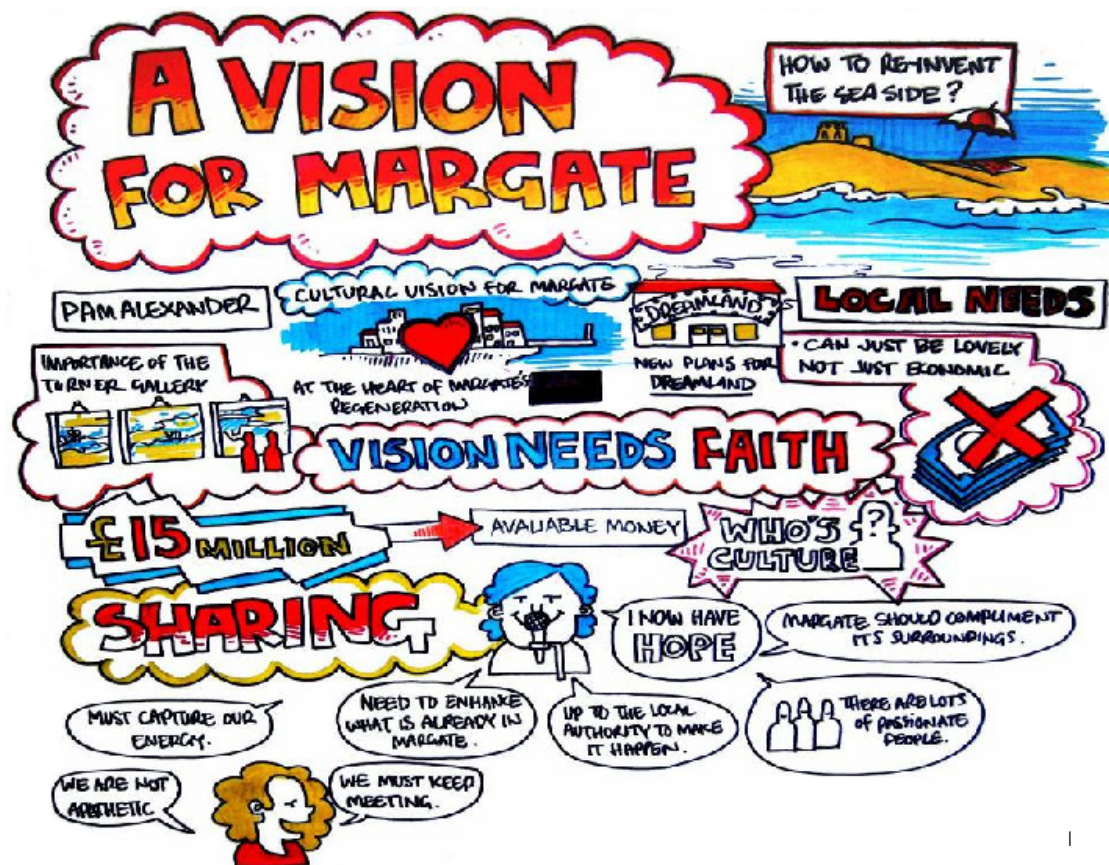 A VISION
FOR MARGATE
HOW TO RE-INVENT
THE SEASIDE?
PAM ALEXANDER
CULTURAL VISION FOR MARGATE
AT THE HEART OF MARGATE'S
REGENERATION
DREAMLAND
NEW PLANS FOR
DREAMLAND
LOCAL NEEDS
• CAN JUST BE LOVELY
NOT JUST ECONOMIC
IMPORTANCE OF THE
TURNER GALLERY
VISION NEEDS FAITH
£15 MILLION
AVALIABLE MONEY
WHO'S
CULTURE
?
SHARING
I NOW HAVE
HOPE
MARGATE SHOULD COMPLIMENT
ITS SURROUNDINGS.
MUST CAPTURE OUR
ENERGY.
NEED TO ENHANCE
WHAT IS ALREADY IN
MARGATE.
UP TO THE LOCAL
AUTHORITY TO MAKE
IT HAPPEN.
THERE ARE LOTS
OF PASSIONATE
PEOPLE.
WE ARE NOT
APATHETIC
WE MUST KEEP
MEETING.